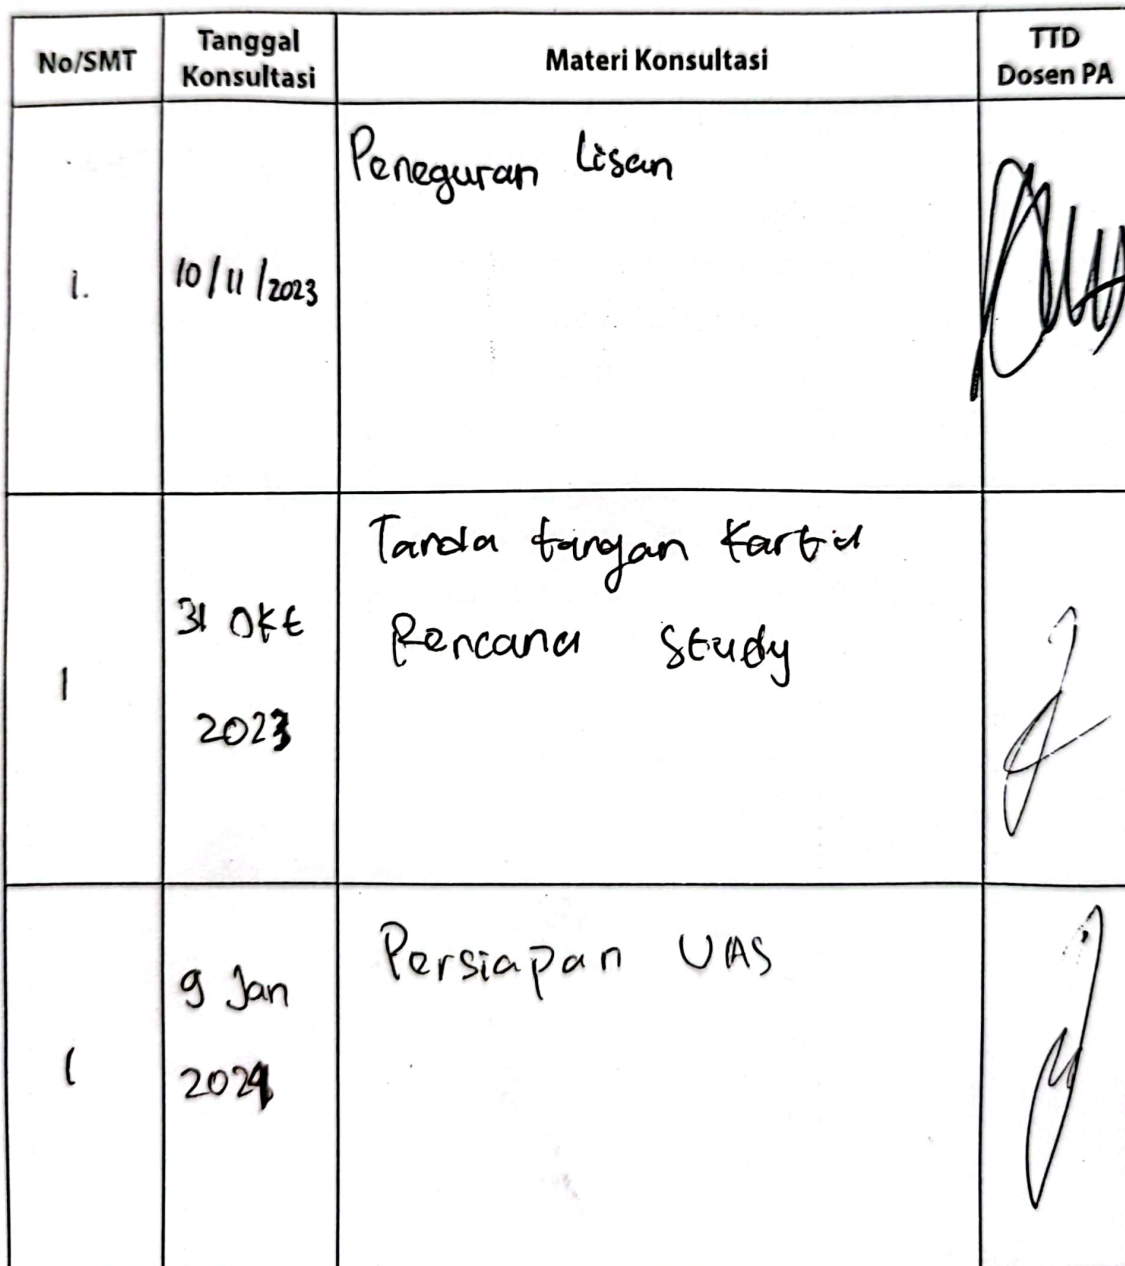 No/SMT
Tanggal
Konsultasi
Materi Konsultasi
TTD
Dosen PA
1.
10/11/2023
Peneguran Lisan
1
31 Okt
2023
Tanda tangan Kartu
Rencana Study
1
9 Jan
2024
Persiapan UAS